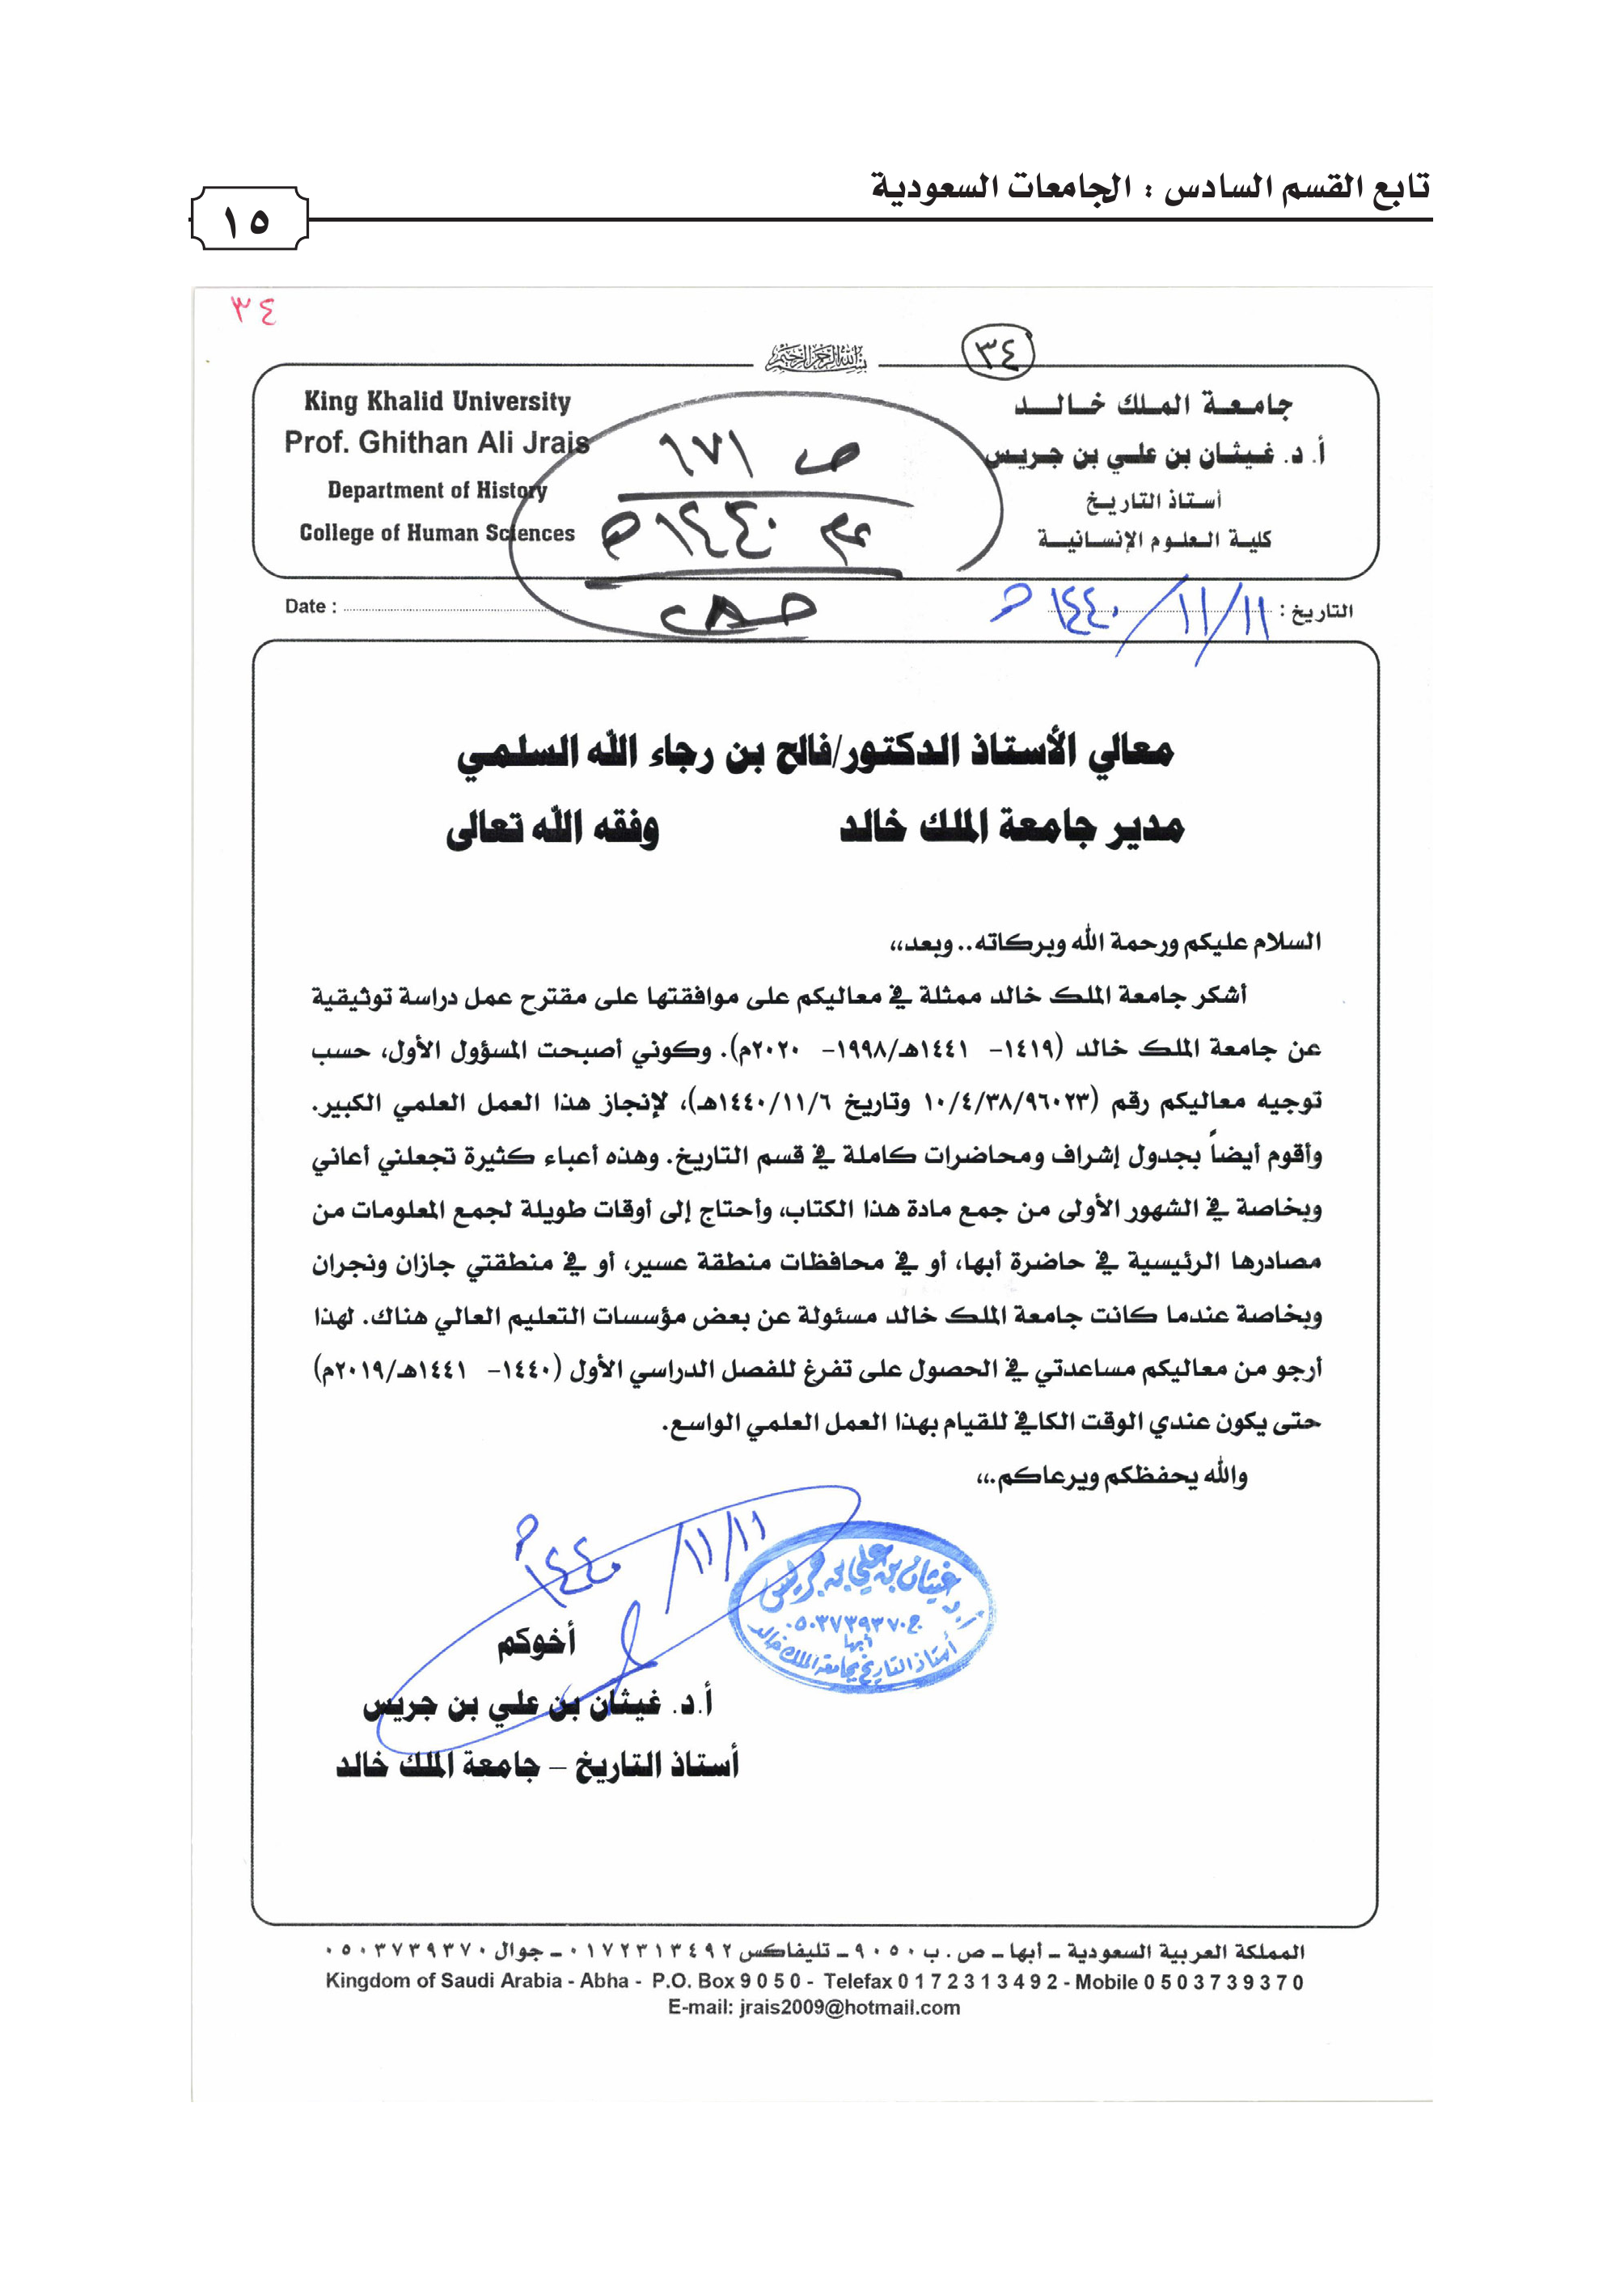 تابع القسم السادس : الجامعات السعودية
١٥
٣٤
٣٤
بسم الله الرحمن الرحيم
جامعة الملك خالد
أ. د. غيثان بن علي بن جريس
أستاذ التاريخ
كلية العلوم الإنسانية
King Khalid University
Prof. Ghithan Ali Jrais
Department of History
College of Human Sciences
ص ٦٧١
١٤٤٠هـ
التاريخ : ١١/١١/١٤٤٠هـ
Date :
معالي الأستاذ الدكتور/فالح بن رجاء الله السلمي
مدير جامعة الملك خالد وفقه الله تعالى
السلام عليكم ورحمة الله وبركاته.. وبعد،،
أشكر جامعة الملك خالد ممثلة في معاليكم على موافقتها على مقترح عمل دراسة توثيقية
عن جامعة الملك خالد (١٤١٩- ١٤٤١هـ/١٩٩٨- ٢٠٢٠م). وكوني أصبحت المسؤول الأول، حسب
توجيه معاليكم رقم (١٠/٤/٣٨/٩٦٠٢٣ وتاريخ ١٤٤٠/١١/٦هـ)، لإنجاز هذا العمل العلمي الكبير.
وأقوم أيضاً بجدول إشراف ومحاضرات كاملة في قسم التاريخ. وهذه أعباء كثيرة تجعلني أعاني
وبخاصة في الشهور الأولى من جمع مادة هذا الكتاب، وأحتاج إلى أوقات طويلة لجمع المعلومات من
مصادرها الرئيسية في حاضرة أبها، أو في محافظات منطقة عسير، أو في منطقتي جازان ونجران
وبخاصة عندما كانت جامعة الملك خالد مسئولة عن بعض مؤسسات التعليم العالي هناك. لهذا
أرجو من معاليكم مساعدتي في الحصول على تفرغ للفصل الدراسي الأول (١٤٤٠- ١٤٤١هـ/٢٠١٩م)
حتى يكون عندي الوقت الكافي للقيام بهذا العمل العلمي الواسع.
والله يحفظكم ويرعاكم.،،
١١/١١/١٤٤٠هـ
أ. د غيثان بن علي بن جريس
ج٠٥٠٣٧٣٩٣٧٠
أبها
أستاذ التاريخ بجامعة الملك خالد
أخوكم
أ.د. غيثان بن علي بن جريس
أستاذ التاريخ – جامعة الملك خالد
المملكة العربية السعودية ـ أبها ـ ص . ب ٩٠٥٠ ـ تليفاكس ٠١٧٢٣١٣٤٩٢ ـ جوال ٠٥٠٣٧٣٩٣٧٠
Kingdom of Saudi Arabia - Abha - P.O. Box 9 0 5 0 - Telefax 0 1 7 2 3 1 3 4 9 2 - Mobile 0 5 0 3 7 3 9 3 7 0
E-mail: jrais2009@hotmail.com